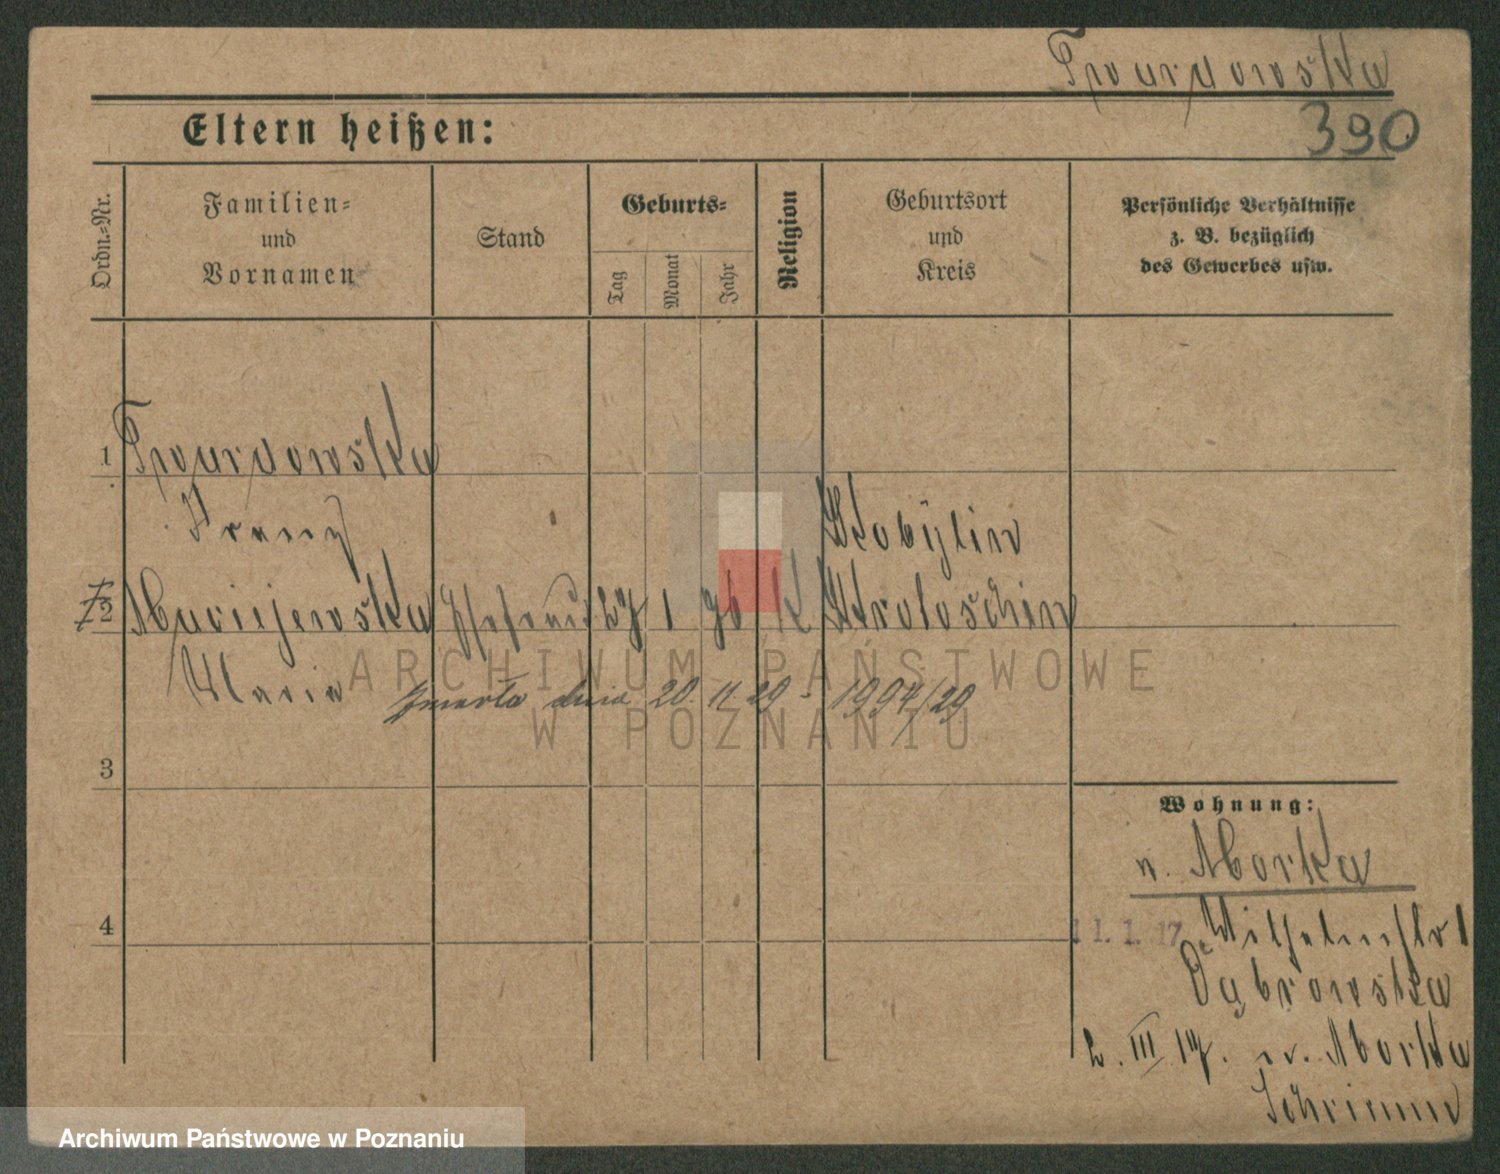 Twardowska
390
Eltern heißen:
Ordn.-Nr.
Familien-
und
Vornamen
Stand
Geburts-
Tag
Monat
Jahr
Religion
Geburtsort
und
Kreis
Persönliche Verhältnisse
z. B. bezüglich
des Gewerbes usw.
1 Twardowska
Franz
Kobylin
2 Maciejewska Ehefrau 27 1 76 K Krotoschin
Maria
zmarła dnia 20. 11 29 - 1994/29
3
Wohnung:
n. Morka
4
11. 1. 17. Wilhelmstr 1
Dąbrowska
2. III. 17. n. Morka
Schrimm
ARCHIWUM PAŃSTWOWE
W POZNANIU
Archiwum Państwowe w Poznaniu